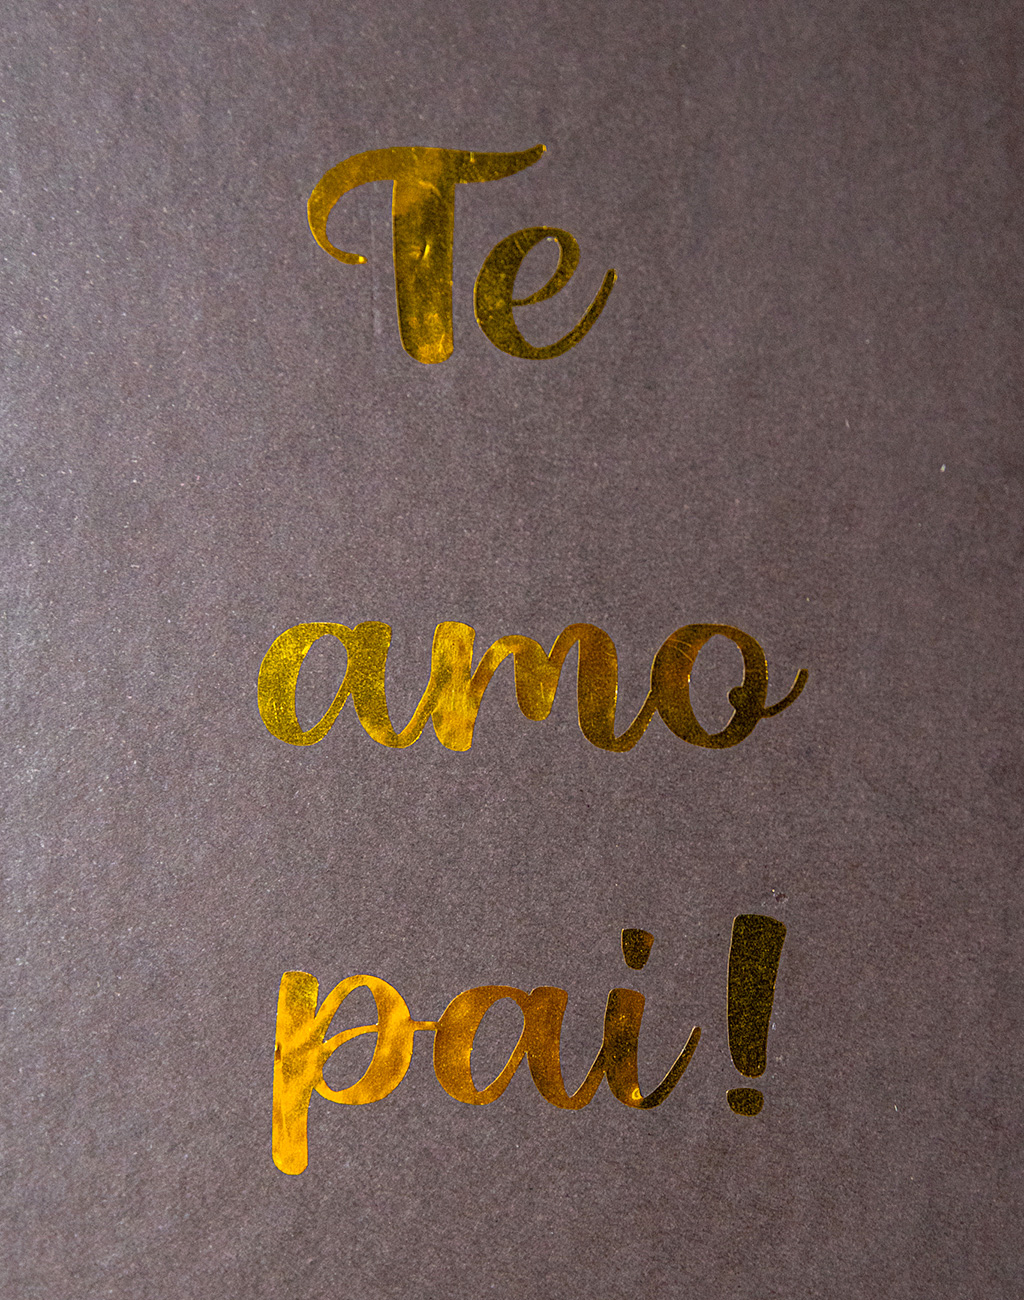 Te
amo
pai!